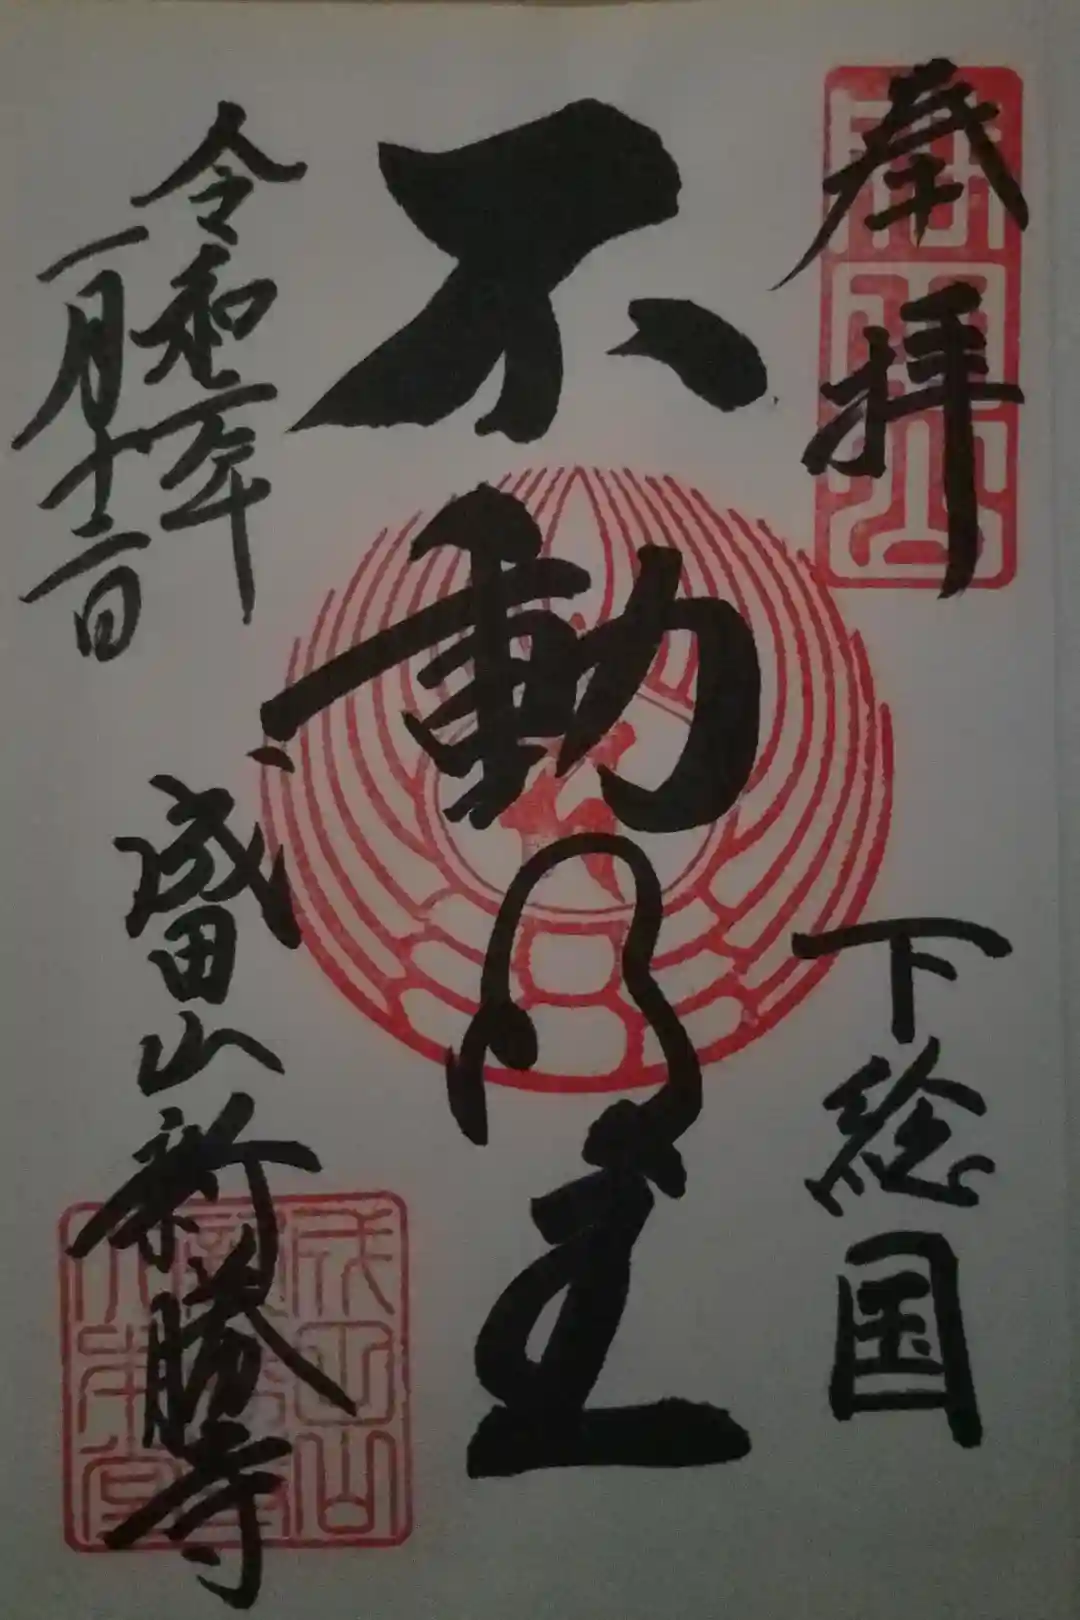 奉拝
下総国
不動明王
令和二年
一月十二日
成田山新勝寺
成田山
大本堂